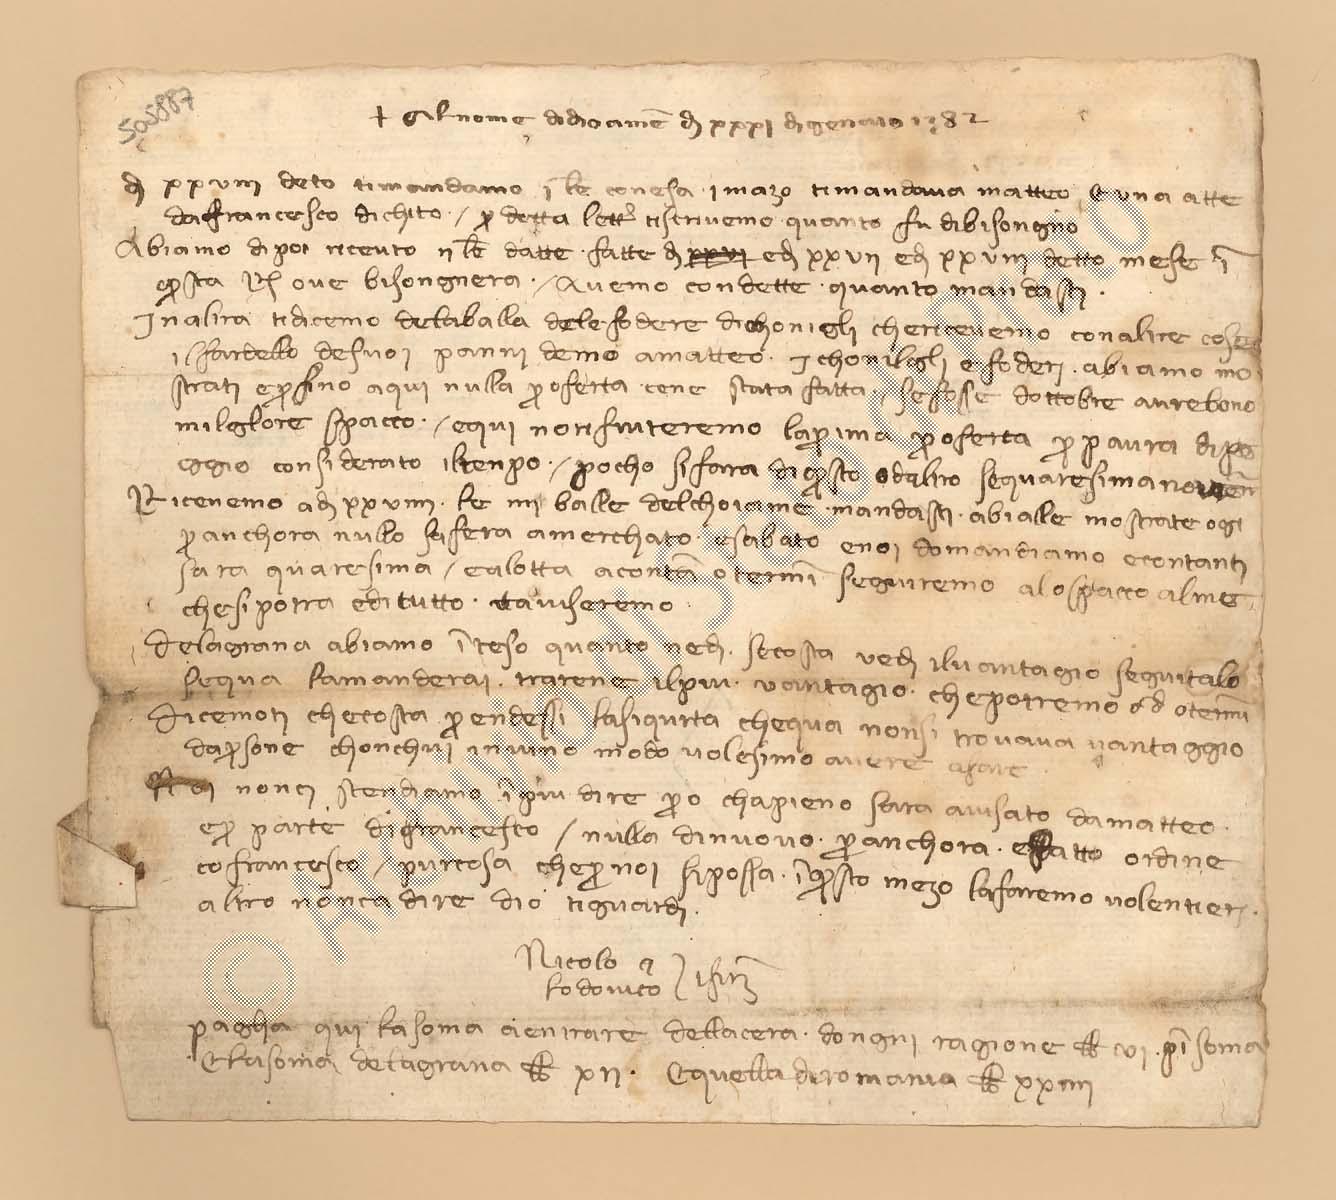 505887
+ Al nome di dio amē dj xxxj di genaio 1382
dj xxviiij deto timandamo ī lē conesa · i mazo timandava matteo, e una atte
da francesco di chito · / p detta lettr tiscrivemo quanto fu dibisongno
Abiamo di poi riceuto ij lē datte · fatte dj xxvi edj xxvij edj xxviij detto mese ī
qsta Rs ove bisongnera · / Avemo con dette · quanto mandasti ·
In altra tidicemo delaballa dele fodere di chonigli che ricevemo con altre cose
i fardello de suoi panni demo amatteo · I chonilgli e foderi · abiamo mo
strati e p sino a qui nulla proferta cene stata fatta · / se fosse dottobre avrebono
milglore spacco · / e qui no rifiuteremo la prima proferta p paura di pe
ggio considerato iltenpo · / pocho si fara di qsto o daltro sequaresima no
Ricevemo adj xxviiij · le iiij balle del choiame · mandasti · abialle mostrate ogi
p anchora nullo sifera a merchato · e sabato e noi domandiamo econtanti
sara quaresima / e alotta a contā o termī seguiremo alo spacco almeg
che si potra e di tutto · taviseremo ·
Dela grana abiamo īteso quanto nedj · se costa vedj il vantagio seguitalo
se qua la manderai · trarene il piu · vantagio · che potremo o termī
Dicemoti che costa prendessi la sigurta che qua non si trovava vantaggio
da psone chonchui in uno modo volesimo avere afare
Noi non ci stendiamo ī piu dire po cha pieno sara avisato da matteo ·
e p parte di francesco / nulla di nuovo · p anchora · e fatto ordine
co francesco / pur cosa che p noi si possa · ī qsto mezo la faremo volentieri ·
altro non ca dire dio ti guardj ·
Nicolo e
Lodovico
paglia qui la soma a entrare della cera · dongni ragione lb vi · p soma
E la soma dela grana lb xij · E quella di romania lb xxiiij
© Archivio di Stato di Prato